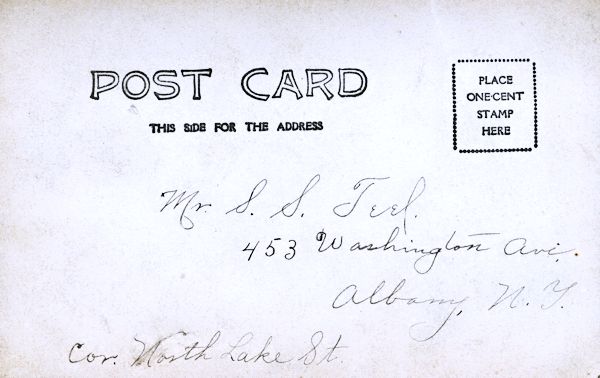 POST CARD
THIS SIDE FOR THE ADDRESS
PLACE
ONE-CENT
STAMP
HERE
Mr. S. S. Teel.
453 Washington Ave.
Albany, N. Y.
Cor. North Lake St.